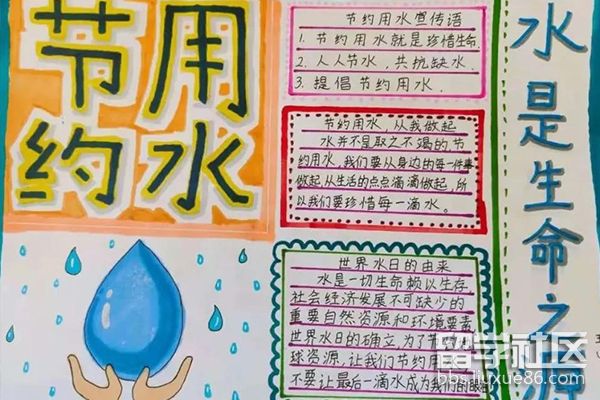 节用
约水
节约用水宣传语
1. 节约用水就是珍惜生命
2. 人人节水，共抗缺水.
3. 提倡节约用水.
节约用水，从我做起
水并不是取之不竭的节
约用水，我们要从身边的每一件事
做起从生活的点点滴滴做起，所
以我们要珍惜每一滴水。
世界水日的由来
水是一切生命赖以生存，
社会经济发展不可缺少的
重要自然资源和环境要素
世界水日的确立，为了节
球资源，让我们节约用
不要让最后一滴水成为我们的眼
水是生命之源
留学社区
bbs.liuxue86.com